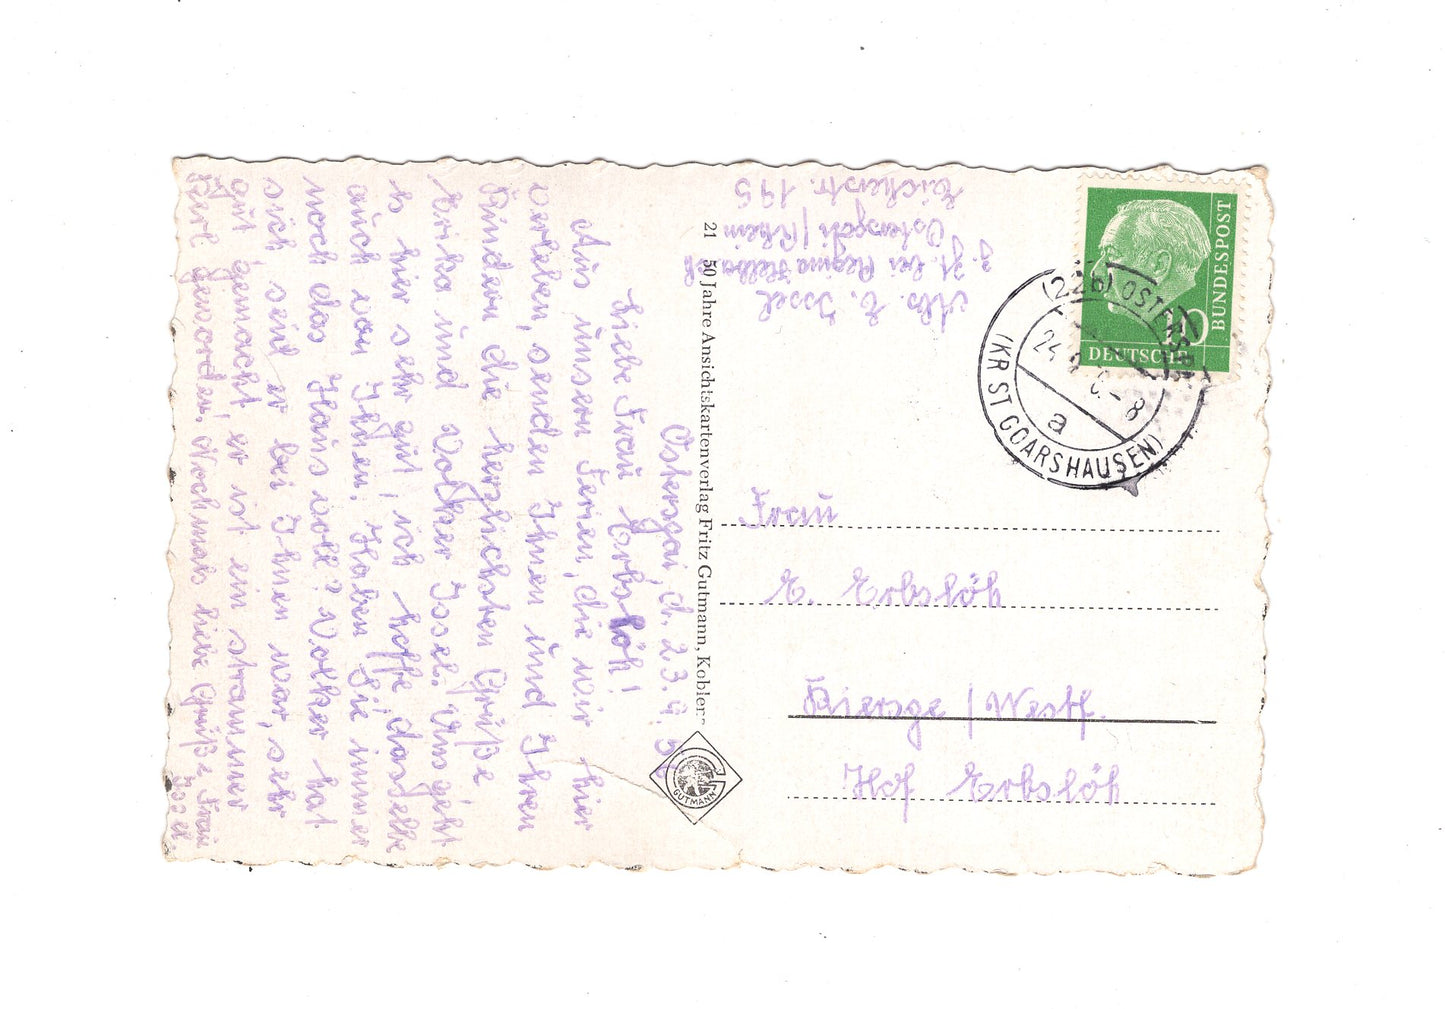 Osterspai, d. 23.9.56
Liebe Frau Erbslöh!
Aus unsern Ferien, die wir hier
verleben, senden Ihnen und Ihren
Kindern die herzlichsten Grüße
Erika und Volker Issel. Uns geht
es hier sehr gut, ich hoffe, dasselbe
auch von Ihnen. Haben Sie immer
noch das Haus voll? Volker hat
sich, seid er bei Ihnen war, sehr
gut gemacht, er ist ein strammer
Kerl geworden. Nochmals liebe Grüße Frau
Issel.
Abs. E. Issel
z. Zt. bei Regina Helbach
Osterspai / Rhein
195
21 50 Jahre Ansichtskartenverlag Fritz Gutmann, Koblenz
GUTMANN
DEUTSCHE
BUNDESPOST
10
(22b) OSTERSPAI
24.9. -8
a
(KR ST GOARSHAUSEN)
Frau
E. Erbslöh
Kierspe / Westf.
Hof Erbslöh